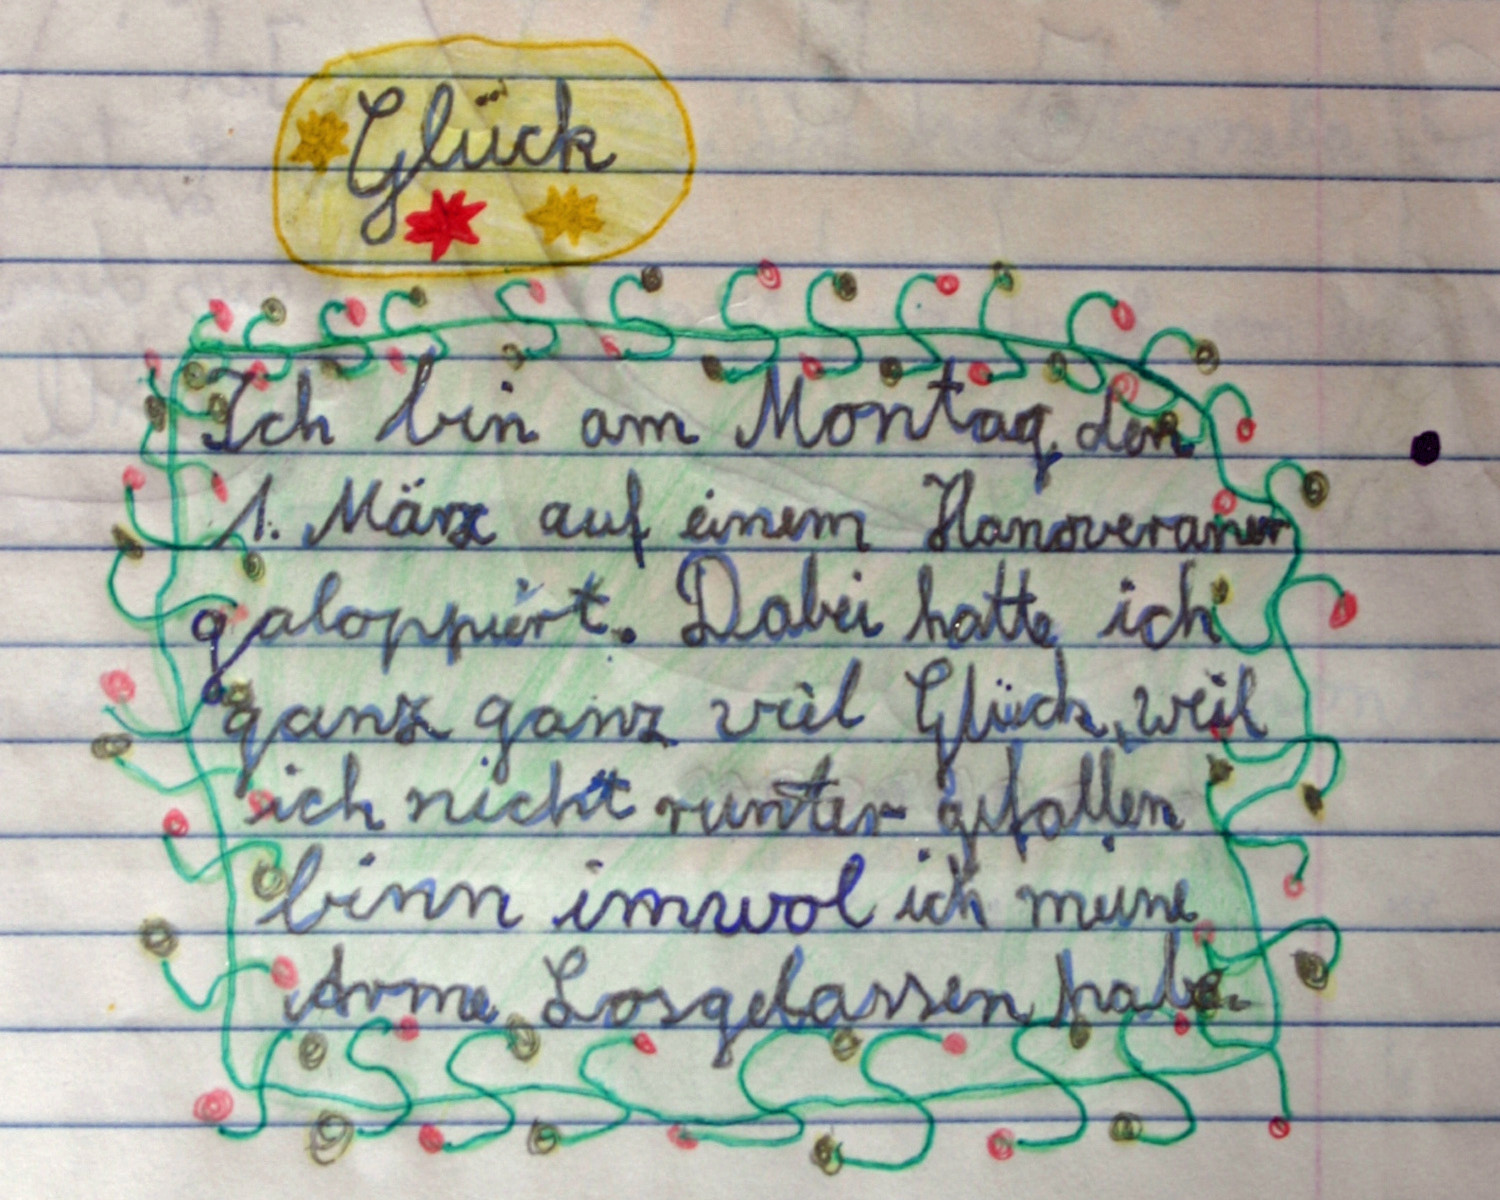 Glück
Ich bin am Montag den
1. März auf einem Hanoveraner
galoppiert. Dabei hatte ich
ganz ganz viel Glück, weil
ich nicht runter gefallen
binn imwol ich meine
Arme Losgelassen habe.